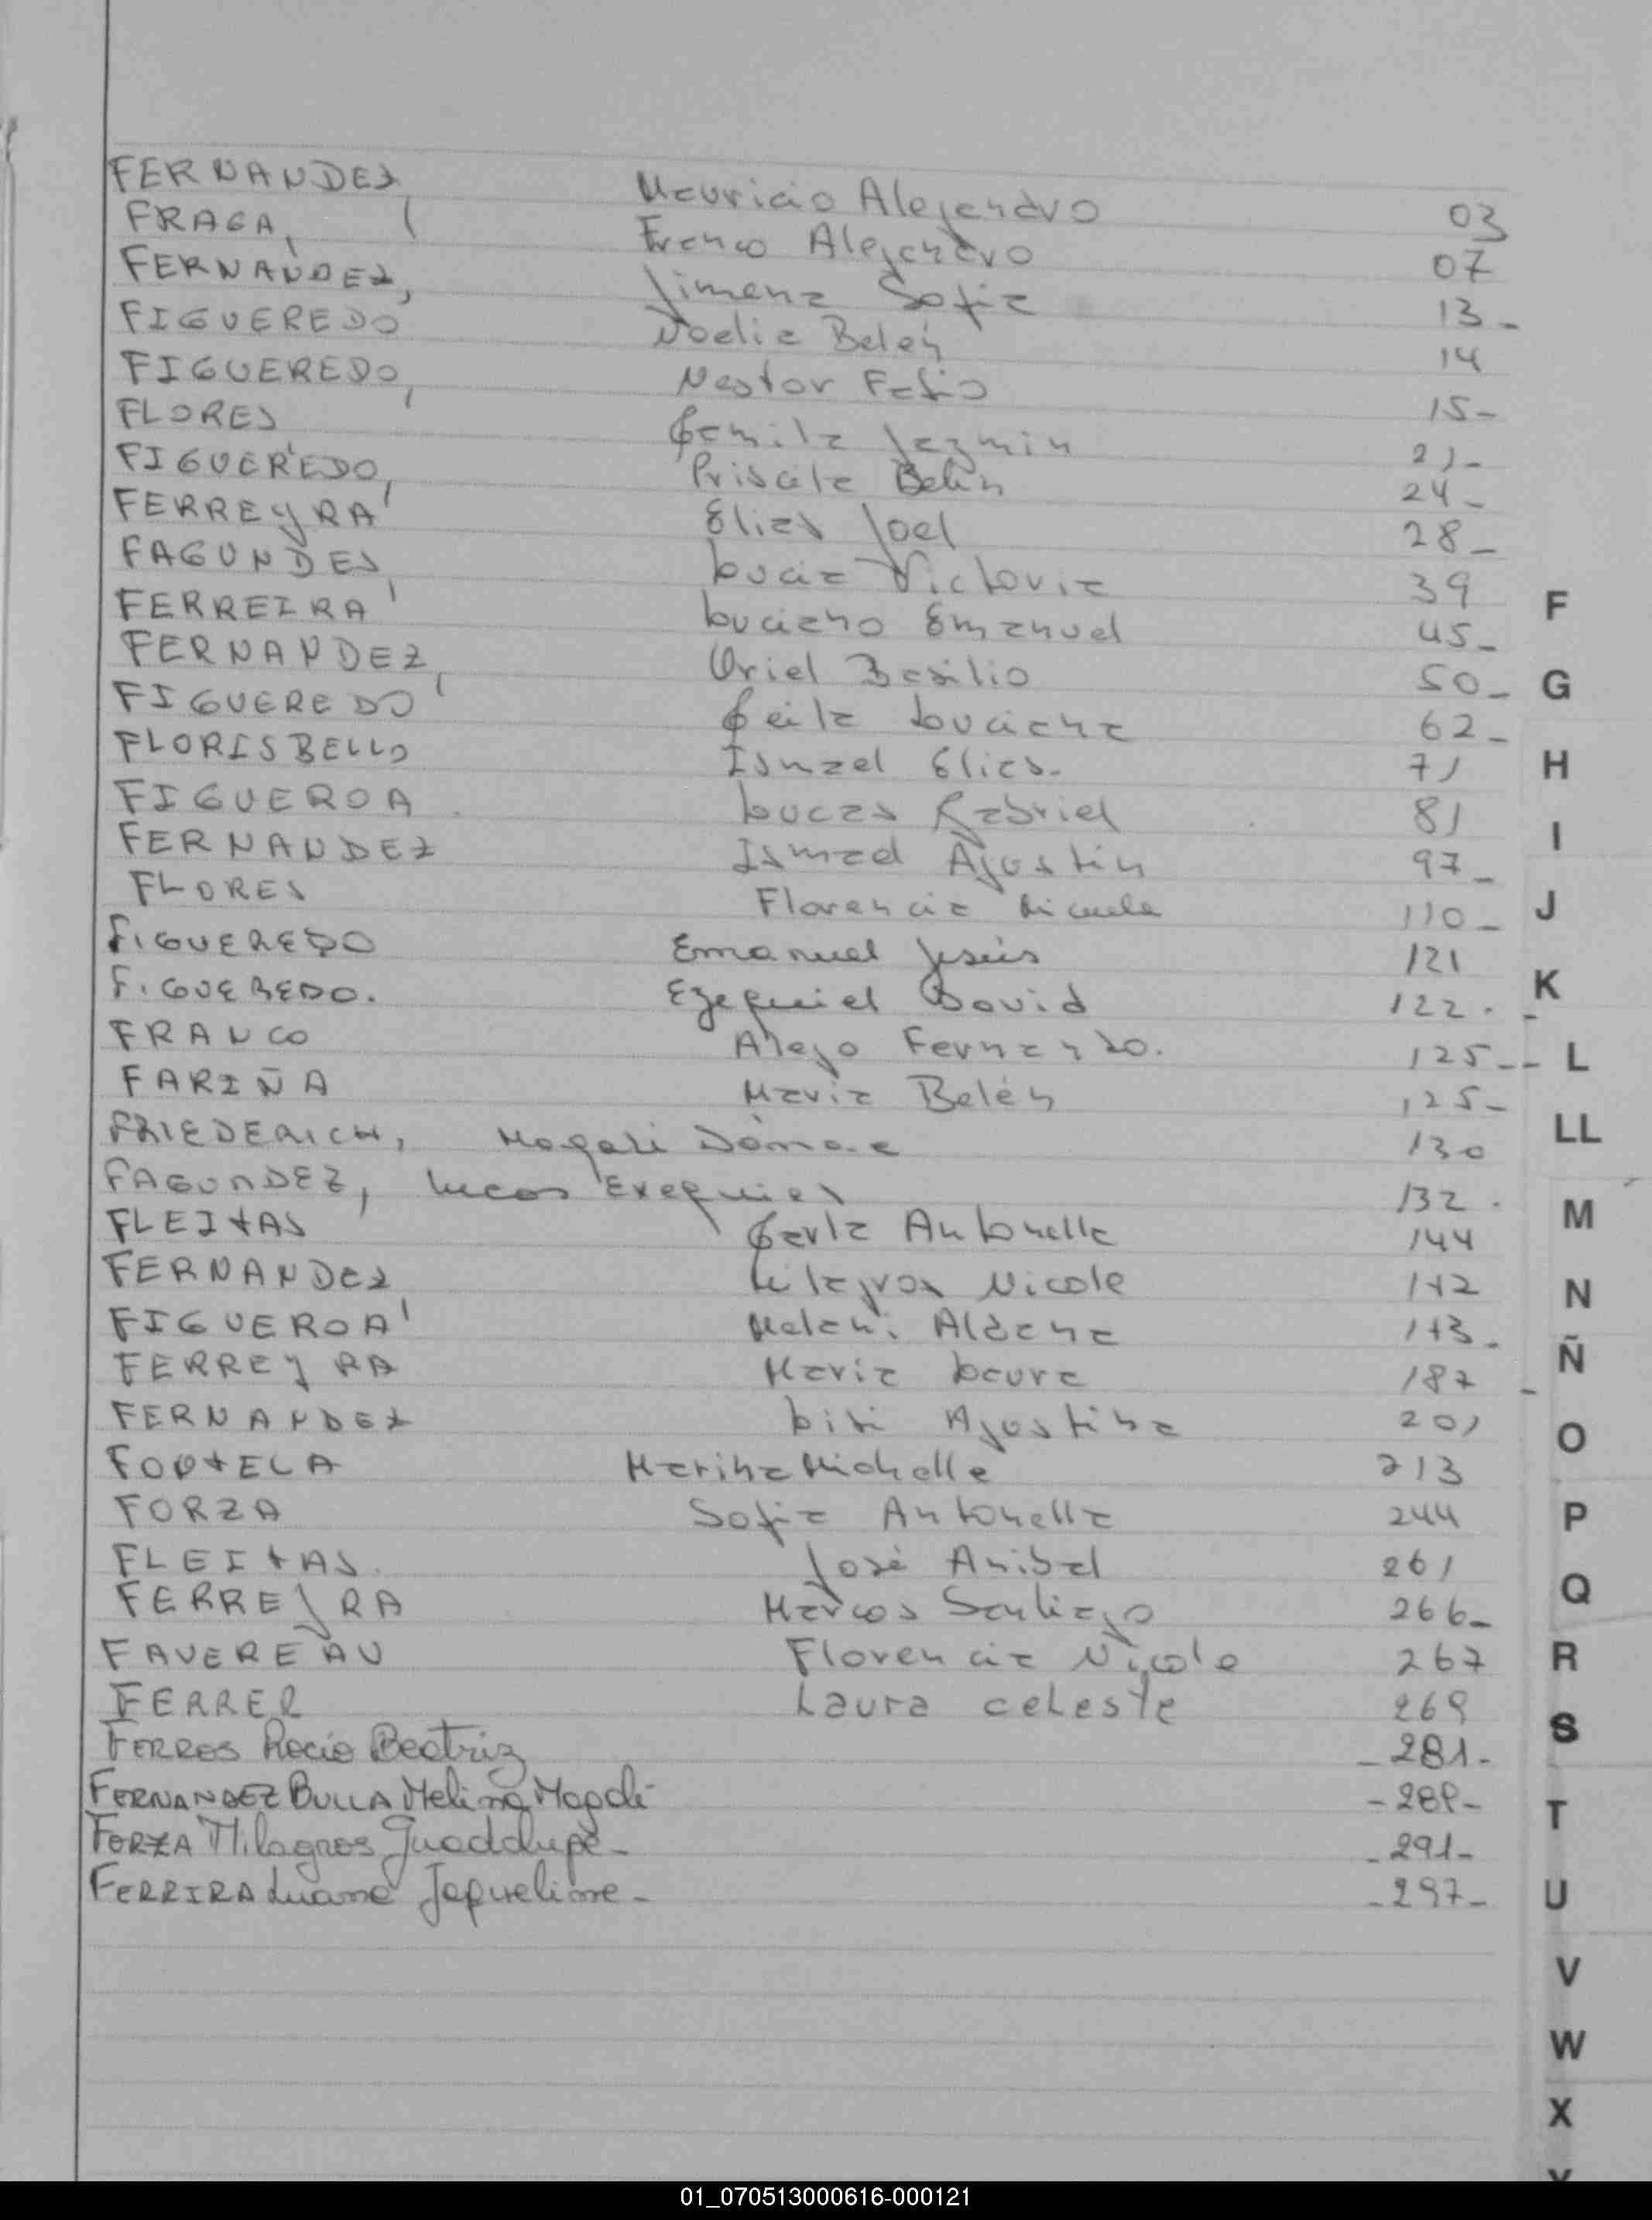 FERNANDEZ, Mauricio Alejandro 03
FRAGA, Franco Alejandro 07
FERNANDEZ, Jimena Sofia 13-
FIGUEREDO Noelia Belén 14
FIGUEREDO, Nestor Fabio 15-
FLORES Camila Jazmin 21-
FIGUEREDO, Priscila Belén 24-
FERREYRA Elias Joel 28-
FAGUNDES, Lucia Victoria 39
FERREIRA Luciano Emanuel 45-
FERNANDEZ, Uriel Basilio 50-
FIGUEREDO Leila Luciana 62-
FLORISBELLO Ismael Elias. 71
FIGUEROA Lucas Gabriel 81
FERNANDEZ Ismael Agustin 97-
FLORES Florencia Micaela 110-
FIGUEREDO Emanuel Jesús 121
FIGUEREDO. Ezequiel David 122.
FRANCO Alejo Fernando. 125-
FARIÑA Maria Belén 125-
FRIEDERICH, Magali 130
FAGUNDEZ, Lucas Exequiel 132.
FLEITAS Carla Antonella 144
FERNANDEZ, Milagros Nicole 172
FIGUEROA Melani Aldana 173-
FERREYRA Maria Laura 187
FERNANDEZ Agustina 201
FORTELA Marina Michelle 213
FORZA Sofia Antonella 244
FLEITAS. José Anibal 261
FERREYRA Marcos Santiago 266-
FAVEREAU Florencia Nicole 267
FERRER Laura celeste 269
FERROS Rocio Beatriz -281-
FERNANDEZ BULLA Melina Magali -289-
FORZA Milagros Guadalupe- -291-
FERRIRA Luana Jaqueline- -297-
F
G
H
I
J
K
L
LL
M
N
Ñ
O
P
Q
R
S
T
U
V
W
X
01_070513000616-000121